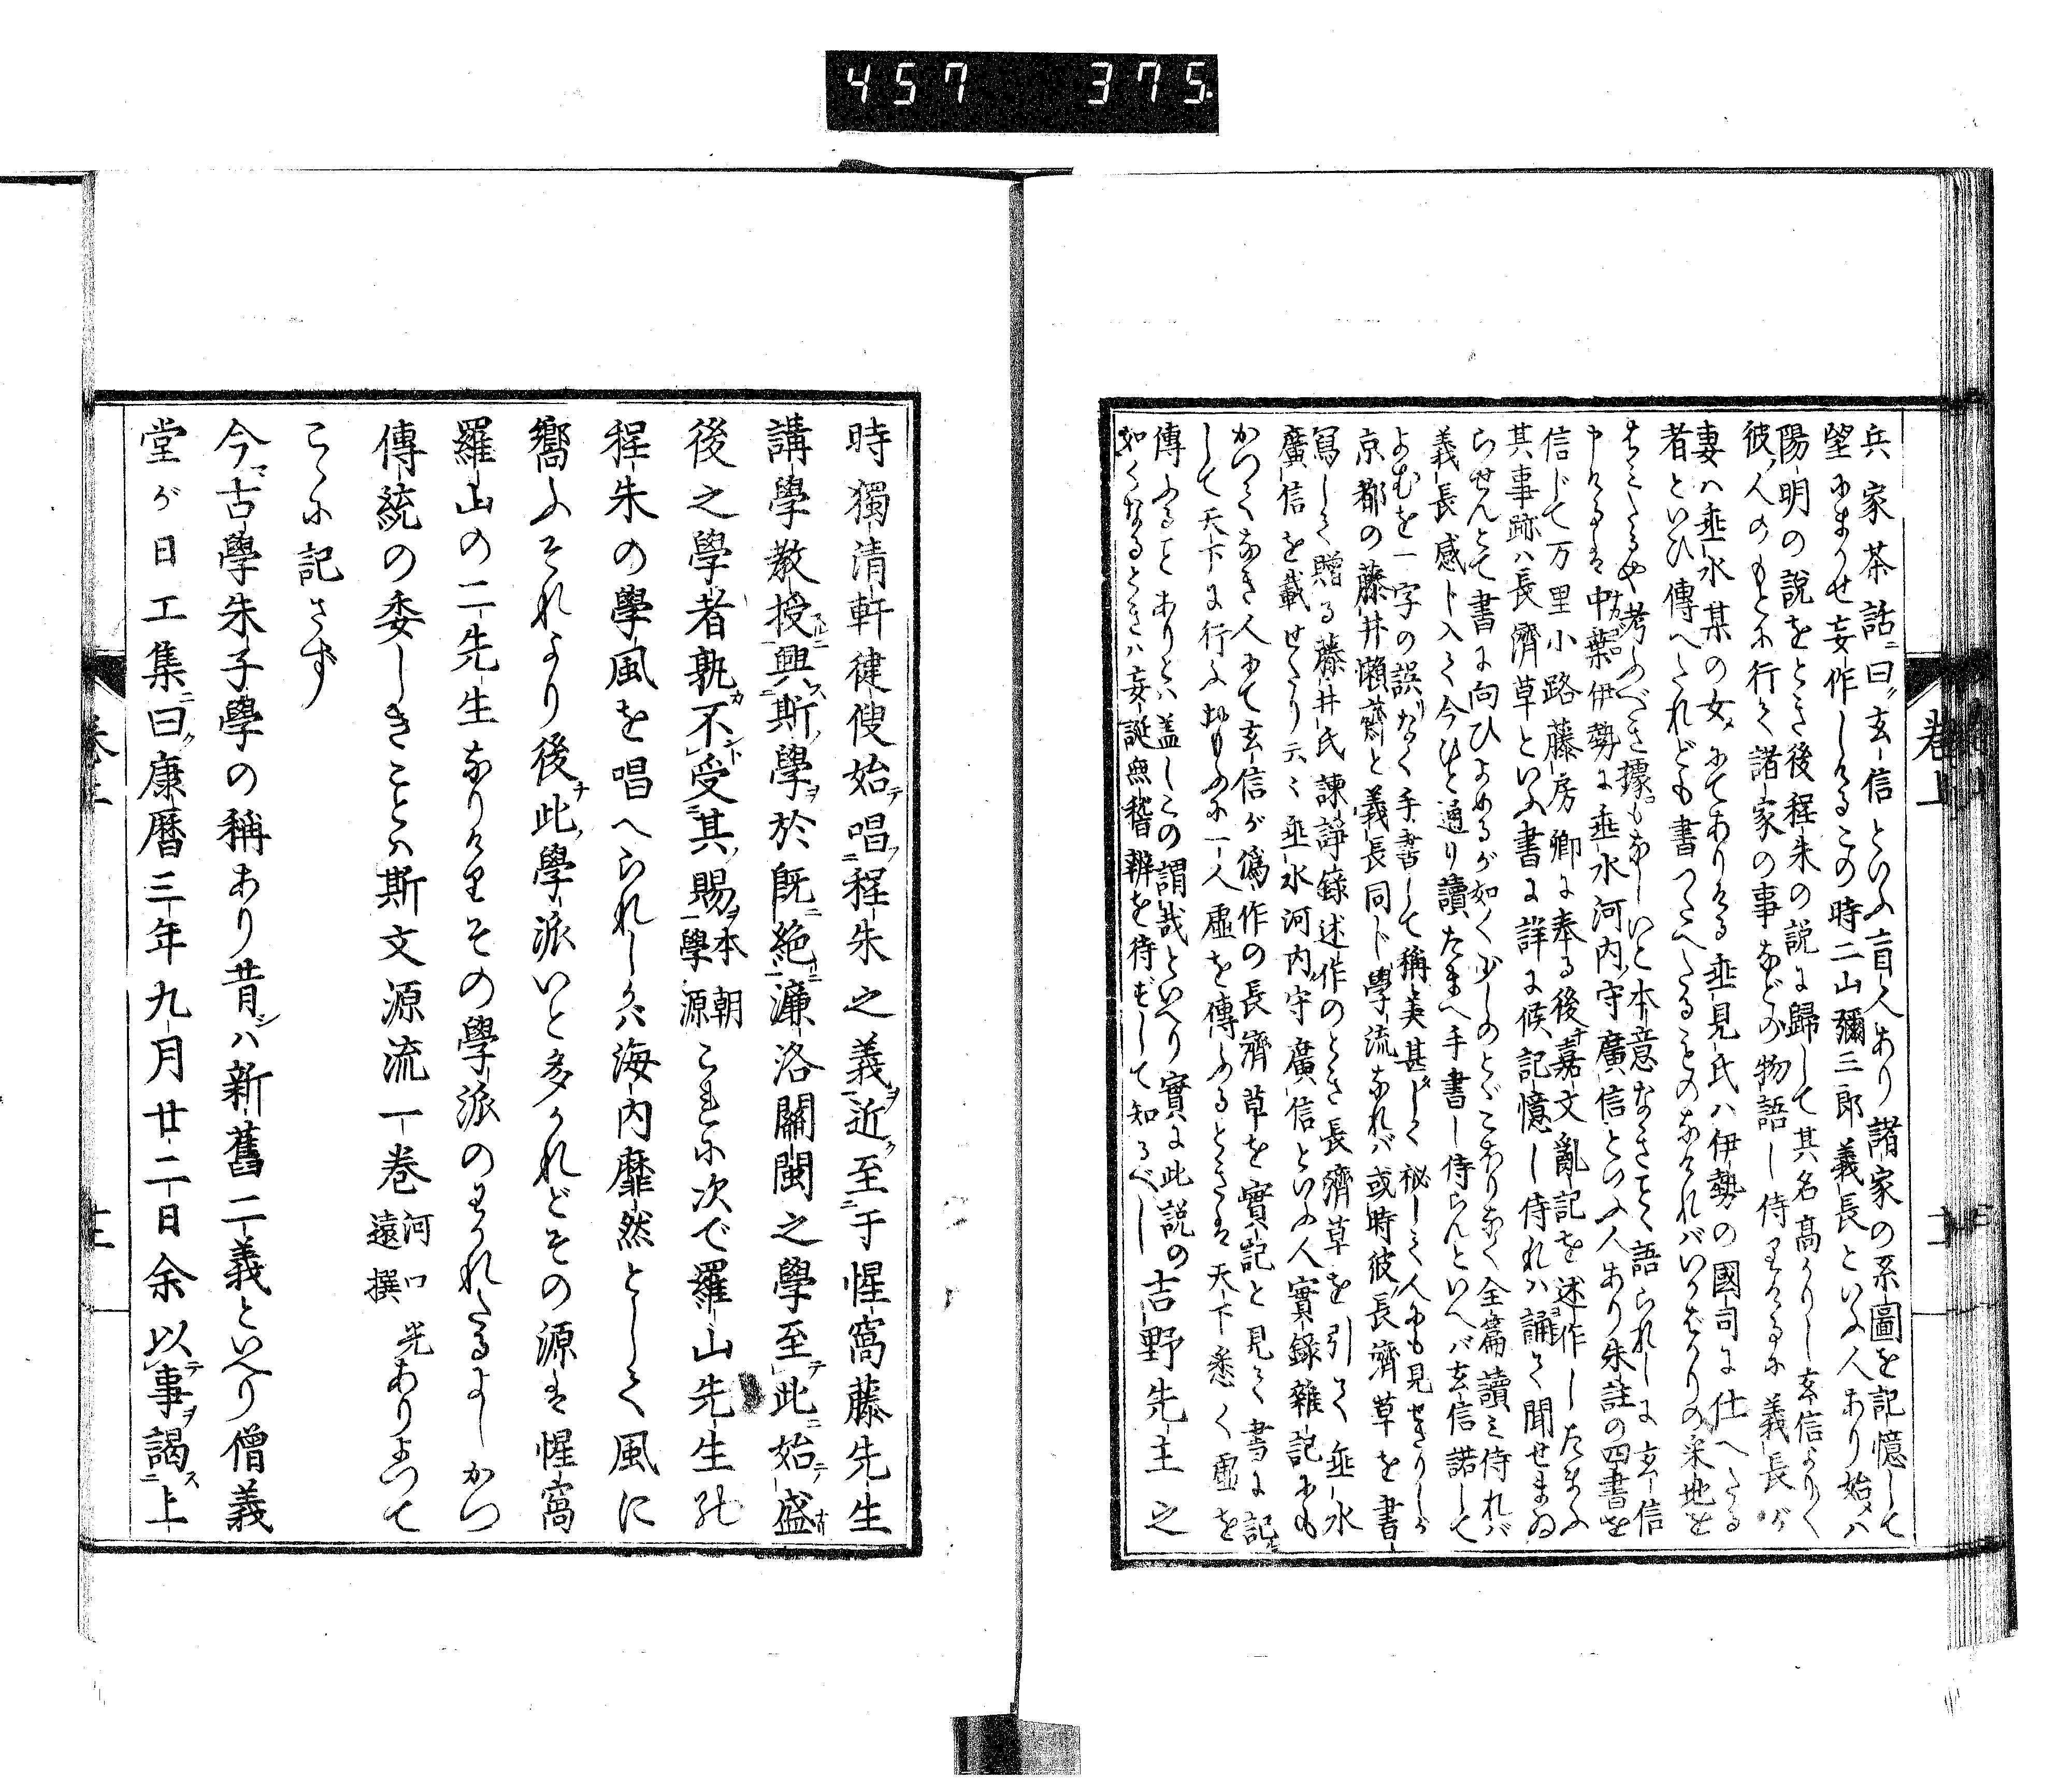 457 375.
兵家茶話ニ曰玄信といふ盲人あり諸家の系圖を記憶して
望にまかせ妄作しけるこの時二山彌三郎義長といふ人あり始メハ
陽明の説をとき後程朱の説に歸して其名高かりし玄信よりよく
彼人のもとに行て諸家の事などの物語し侍りけるに義長が
妻ハ垂水某の女にてありける垂見氏ハ伊勢の國司に仕へたる
者といひ傳へたれども書つたへたることのなければいかばかりの采地を
考ふべき據もなしいと本意なきことと語られしに玄信
申けるは中葉伊勢に垂水河内守廣信といふ人あり朱註の四書を
信じて万里小路藤房卿に奉る後嘉文亂記を述作したまふ
其事跡ハ長濟草といふ書に詳に候記憶し侍れハ誦て聞せまゐ
らせんとて書に向ひよめるが如く少しのとどこほりなく全篇讀ミ侍れバ
義長感ト入て今ひと通り讀たまへ手書し侍らんといへバ玄信諾して
よむを一字の誤りなく手書して稱美甚しく秘して人にも見せざりしが
京都の藤井懶齋と義長同ト學流なれバ或時彼長濟草を書
寫して贈る藤井氏諫諍錄述作のとき長濟草を引て垂水
廣信を載せたり云々垂水河内守廣信といふ人實錄雜記にも
かつてなき人にて玄信が僞作の長濟草を實記と見て書に記
して天下に行ふ始ものに一人虛を傳ふるときは天下悉く虛を
傳ふることありとハ蓋しこの謂哉といへり實に此説の
如くなるときハ妄誕無稽辨を待ずして知るべし 吉野先主之
巻上
時獨清軒健叟始テ唱フ程朱之義ヲ近ク至于惺窩藤先生
講學教授スルニ興ス斯ノ學ヲ於既ニ絶ニ濂洛關閩之學至テ此ニ始テ盛
後之學者孰カ不ント受其ノ賜ヲ本朝學源これに次で羅山先生
程朱の學風を唱へられしかバ海内靡然として風に
嚮ふそれより後チ此ノ學派いと多かれどその源は惺窩
羅山の二先生なりけりその學派のわかれたるよしかつ
傳統の委しきことハ斯文源流一巻河口光遠撰ありよつて
こゝに記さず
今マ古學朱子學の稱あり昔シハ新舊二義といへり僧義
堂ガ日工集ニ曰ク康暦三年九月廿二日余以テ事ヲ謁ス上